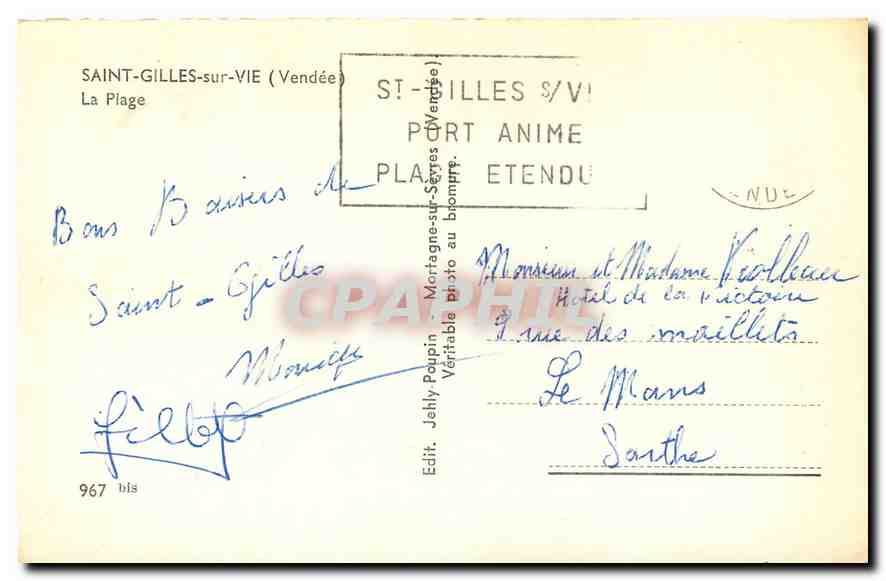 SAINT-GILLES-sur-VIE (Vendée)
La Plage
ST-GILLES S/VI
PORT ANIME
PLAGE ETENDU
NDE
Bons Baisers de
Saint-Gilles
Monique
967 bis
Edit. Jehly-Poupin - Mortagne-sur-Sèvres (Vendée).
Véritable photo au bromure.
Monsieur et Madame Violleau
Hotel de la Victoire
9 rue des maillets
Le Mans
Sarthe
CPAPHIL